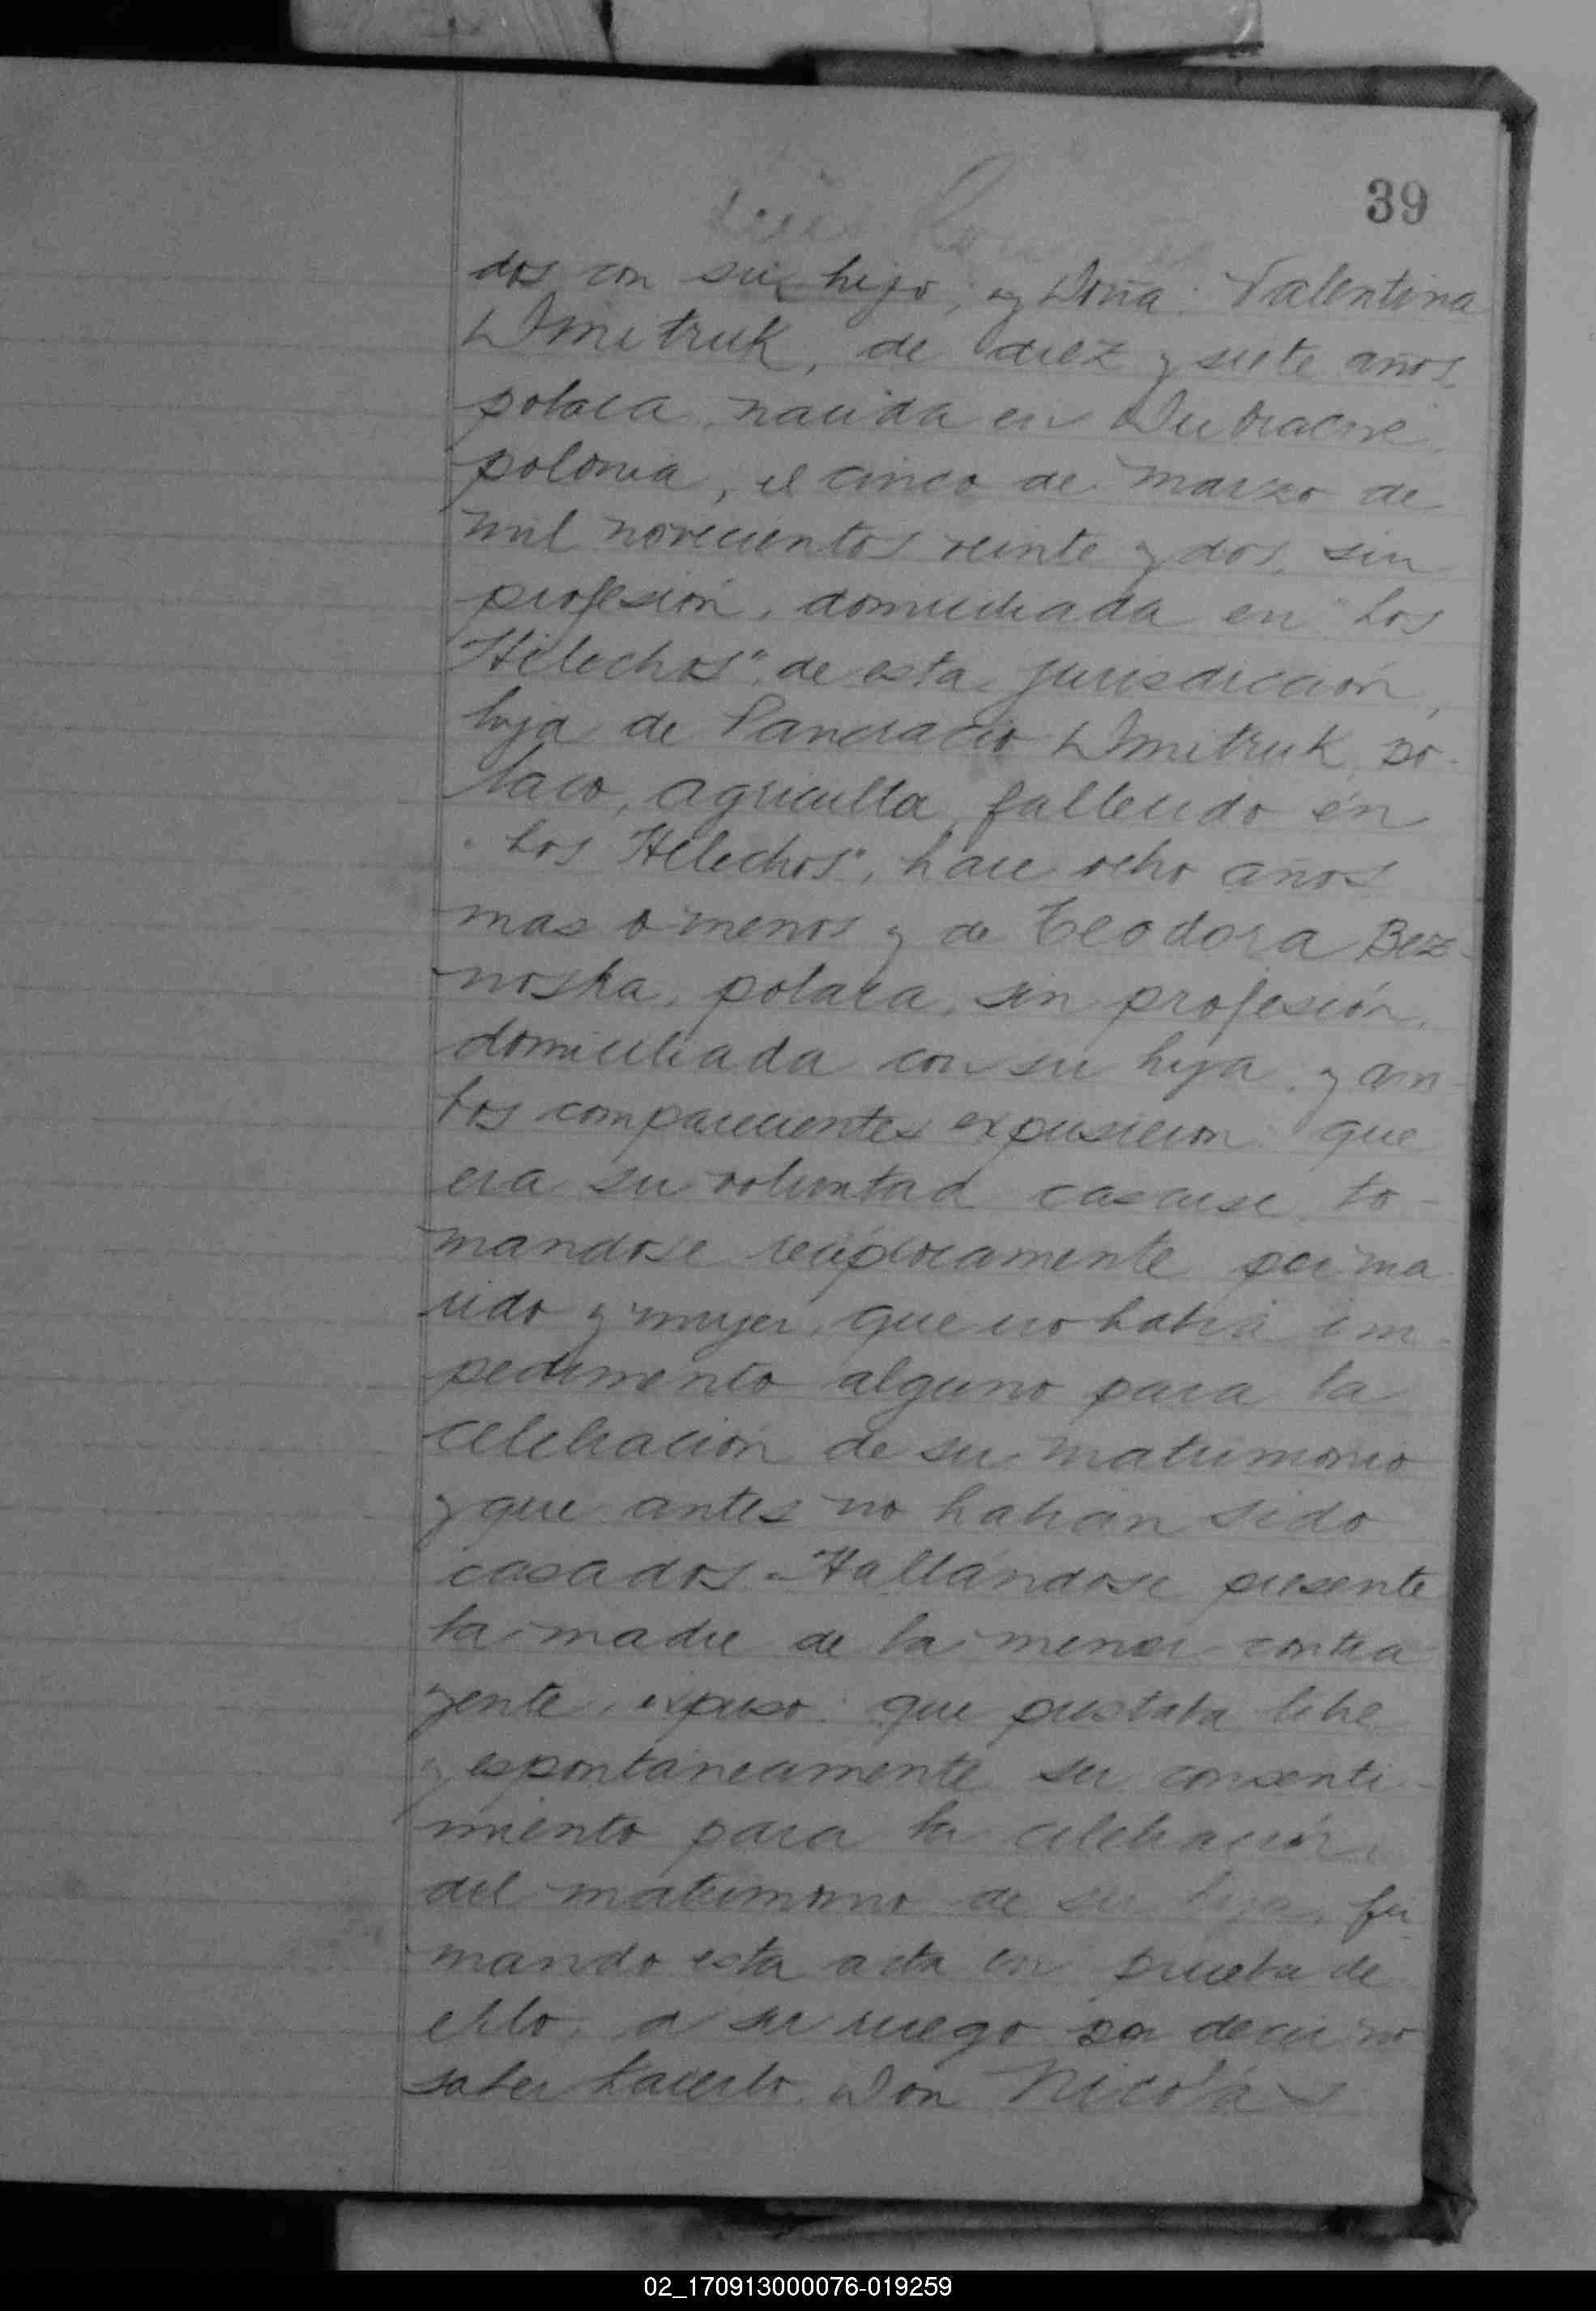 39
dos con su hijo; y Doña Valentina
Dmitruk, de diez y siete años,
polaca, nacida en
polonia, el cinco de marzo de
mil novecientos veinte y dos, sin
profesión, domiciliada en "Los
Helechos" de esta jurisdicción,
hija de Pancracio Dmitruk, po-
laco, agriculto, fallecido en
"Los Helechos", hace ocho años
mas o menos y de Teodora Bez-
noska, polaca, sin profesión,
domiciliada con su hija; y am-
bos comparecientes expusieron: que
era su voluntad casarse, to-
mandose reciprocamente por ma-
rido y mujer, que no habia im-
pedimento alguno para la
celebración de su matrimonio
y que antes no habian sido
casados.- Hallándose presente
la madre de la menor contra-
yente, expuso: que prestaba libre
y espontáneamente su consenti-
miento para la celebración
del matrimonio de su hija, fir-
mando esta acta en prueba de
ello, a su ruego por decir no
saber hacerlo, Don Nicolás
02_170913000076-019259